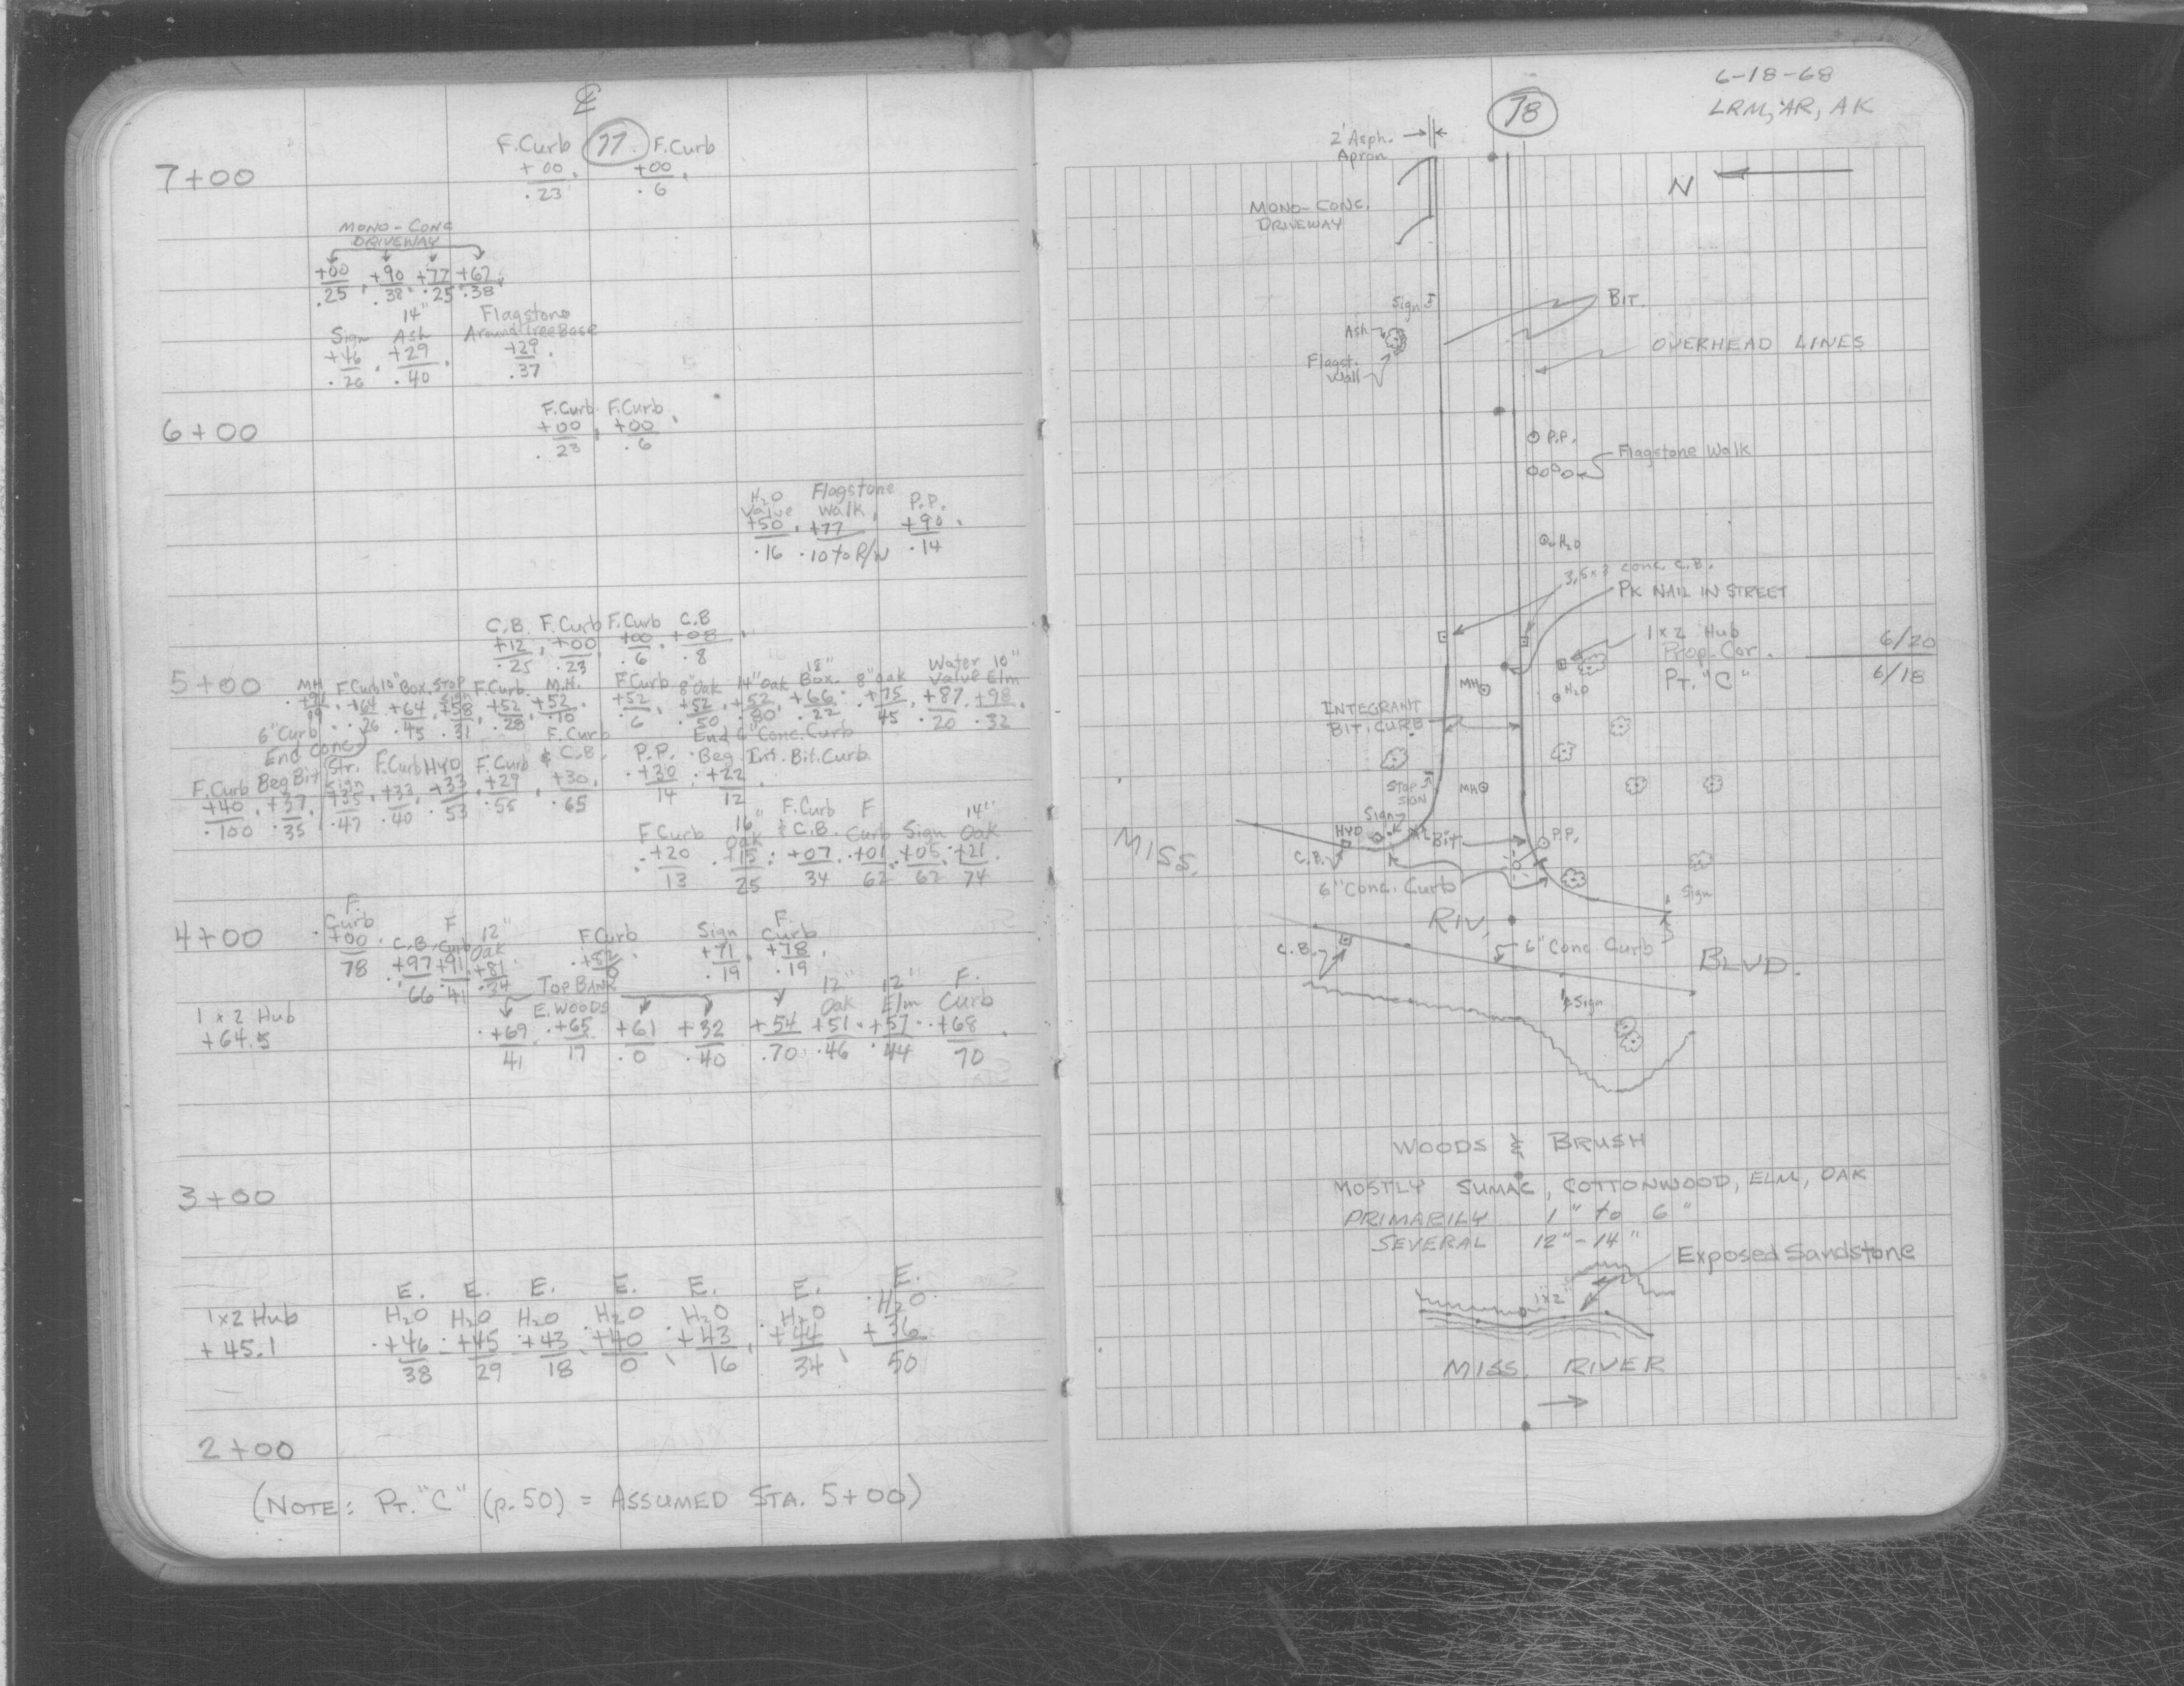 ℄
F. Curb 77 F. Curb
7+00 +00 +00
.23 .6
MONO-CONC
DRIVEWAY
+00 +90 +77 +62
.25 .38 .25 .38
14" Flagstone
Sign Ash Around Tree Base
+46 +29 +29
.26 .40 .37
F. Curb F. Curb
6+00 +00 +00
23 .6
H₂O Flagstone
Valve Walk P.P.
+50 +77 +90
.16 .10 to R/W .14
C.B. F. Curb F. Curb C.B
+12 +00 +00 +08
.25 .23 .6 .8
5+00 MH F. Curb 10" Box. Stop Sign F. Curb M.H. F. Curb 8" Oak 14" Oak 18" Box. 8" oak Water Valve 10" Elm
+64 +64 +58 +52 +52 +52 +52 +52 +66 +75 +87 +98
19 .26 .45 .31 .28 .10 6 .50 .80 .22 45 .20 .32
6" Curb F. Curb End 6" Conc. Curb
End Conc. & C.B. P.P. Beg. Int. Bit. Curb
F. Curb Beg Bit Str. Sign F. Curb HYD F. Curb +30 +30 +22
+40 +37 +35 +33 +33 +29 .65 14 12
.100 .35 .47 .40 .53 .55
16" F. Curb F 14"
F. Curb Oak & C.B. Curb Sign Oak
+20 +15 +07 +01 +05 +21
13 25 34 62 62 74
F.
Curb F 12" F.
4+00 +00 C.B. Curb Oak F. Curb Sign Curb
78 +97 +91 +81 +82 +71 +78
66 41 .34 0 .19 .19
TOP BANK 12" 12" F.
1 x 2 Hub E. WOODS Oak Elm Curb
+64.5 +69 +65 +61 +32 +54 +51 +57 +68
41 17 .0 .40 .70 .46 .44 70
3+00
E. E. E. E. E. E. E.
1x2 Hub H₂O H₂O H₂O H₂O H₂O H₂O H₂O
+45.1 +46 +45 +43 +40 +43 +44 +36
38 29 18 0 16 34 50
2+00
(NOTE: PT. "C" (p. 50) = ASSUMED STA. 5+00)
6-18-68
78
LRM, AR, AK
2' Asph.
Apron
N
MONO-CONC.
DRIVEWAY
Sign
BIT.
Ash
OVERHEAD LINES
Flagst.
Wall
P.P.
Flagstone Walk
H₂O
3.5x3 Conc. C.B.
PK NAIL IN STREET
1x2 Hub 6/20
Prop. Cor.
PT. "C" 6/18
MH
H₂O
INTEGRANT
BIT. CURB
STOP
SIGN
MH
Sign
HYD
Bit
P.P.
MISS.
C.B.
6" Conc. Curb
Sign
RIV.
C.B.
6" Conc Curb
BLVD.
Sign
WOODS & BRUSH
MOSTLY SUMAC, COTTONWOOD, ELM, OAK
PRIMARILY 1" to 6"
SEVERAL 12"-14"
Exposed Sandstone
1x2"
MISS. RIVER